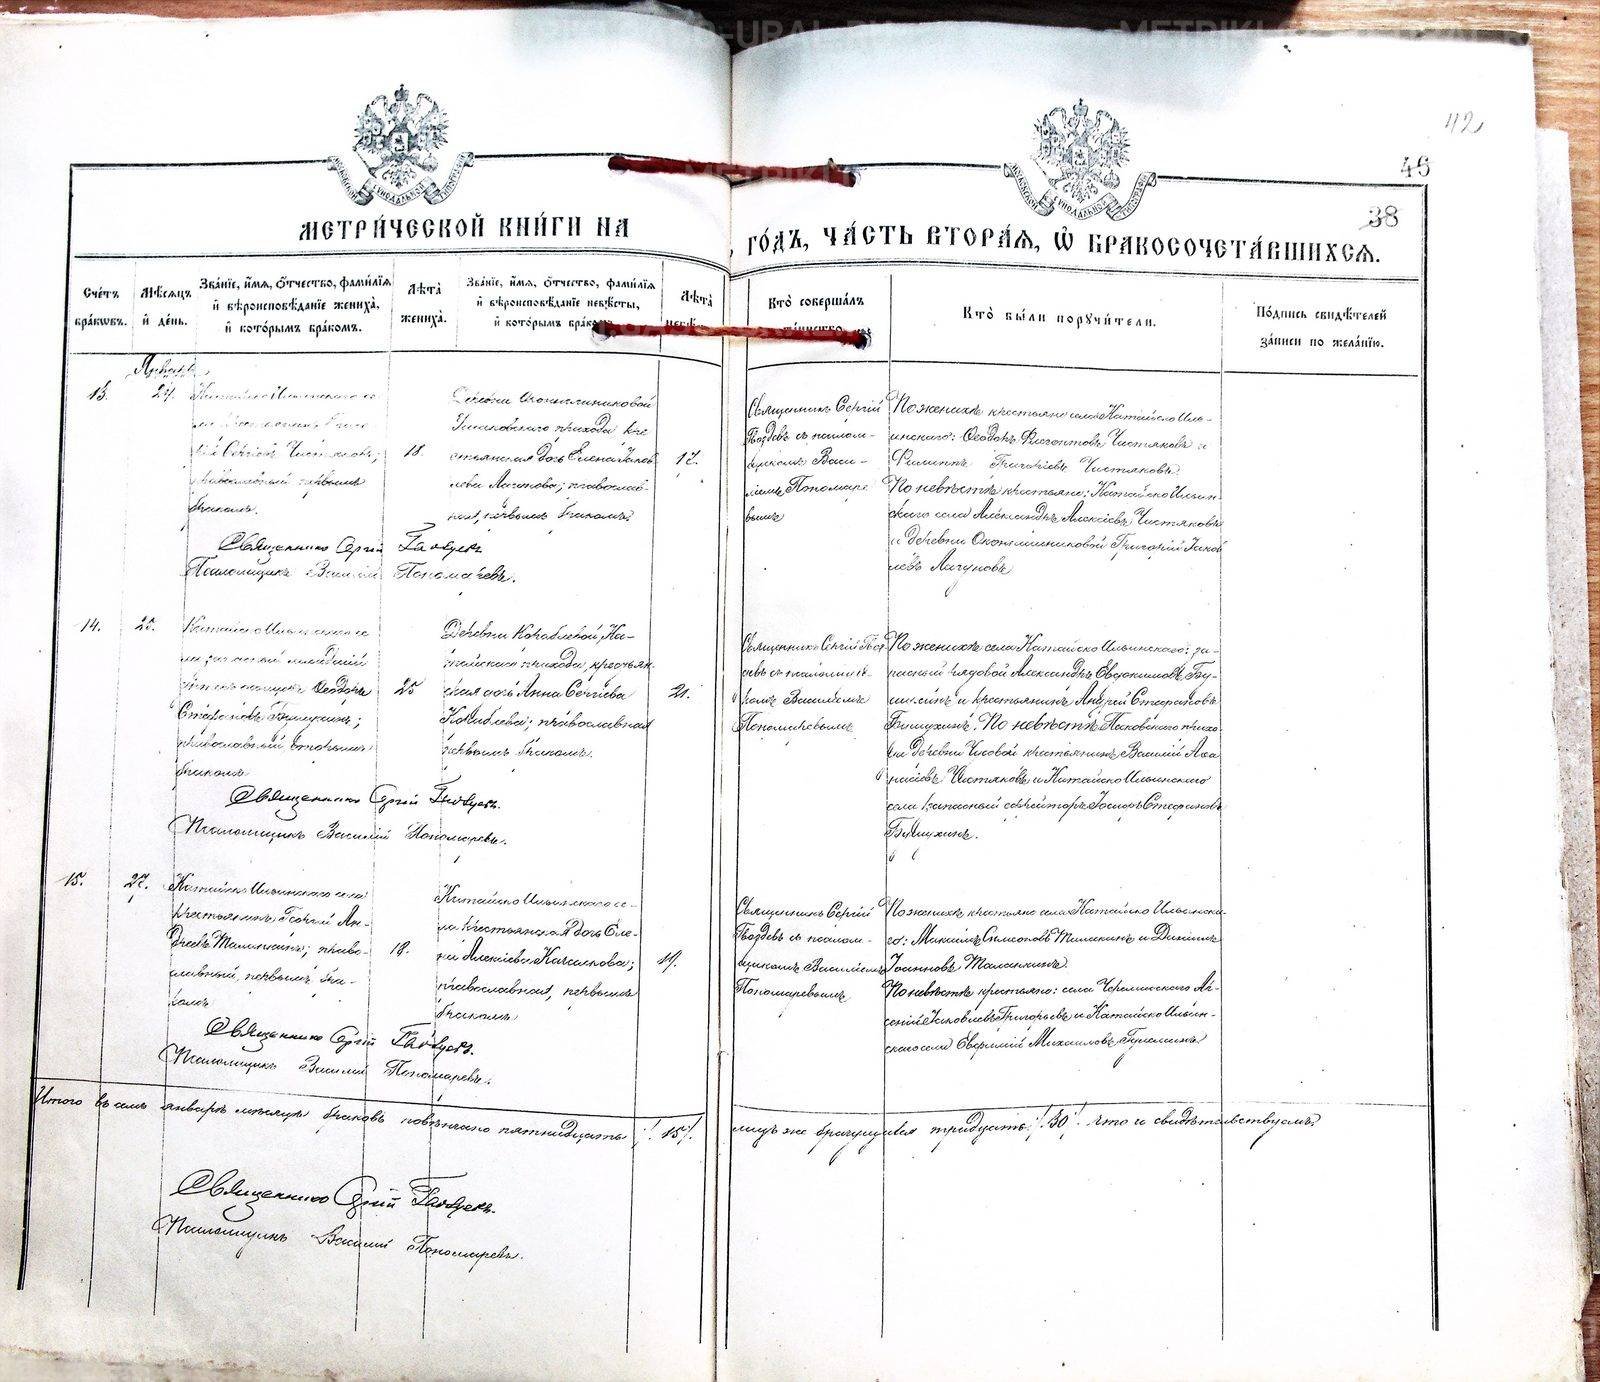 42
46
38
МЕТРИ́ЧЕСКОЙ КНИ́ГИ НА
, ГО́ДЪ, ЧА́СТЬ ВТОРА́Я, Ѡ БРАКОСОЧЕТА́ВШИХСЯ.
Сче́тъ бра́кѡвъ.
Мѣ́сяцъ и́ де́нь.
Зва́нїе, и́мя, ѻ́тчество, фами́лїя и́ вѣроисповѣ́данїе жениха̀, и́ кото́рымъ бра́комъ.
Лѣ́та̀ жениха̀.
Зва́нїе, и́мя, ѻ́тчество, фами́лїя и́ вѣроисповѣ́данїе невѣ́сты, и́ кото́рымъ бра́комъ
Лѣ́та̀
Кто̀ соверша́лъ
Кто̀ бы́ли порꙋчи́тели.
По́дпись свидѣ́телей за́писи по жела́нїю.
Январь
13.
24.
Катайско Ильинскаго се-
Сергіевъ Чистяковъ;
православный первымъ
бракомъ.
18.
Деревни
прихода кре-
стьянская дочь Елена Яков-
лева Лагунова; православ-
ная, первымъ бракомъ.
17.
Священникъ Сергій
Гвоздевъ съ псалом-
щикомъ Васи-
ліемъ Пономаре-
вымъ
По женихѣ крестьяне села Катайско Иль-
инскаго: Ѳеодоръ Чистяковъ и
Филиппъ Григорьевъ Чистяковъ.
По невѣстѣ крестьяне: Катайско Ильин-
скаго села Александръ Алексіевъ Чистяковъ
и деревни Григорій Яков-
левъ Лагуновъ
Священникъ Сергій Гвоздевъ
Псаломщикъ Василій Пономаревъ.
14.
25.
Катайско Ильинскаго се-
ла запасный младшій
Ѳеодоръ
Стефановъ
православный вторымъ
бракомъ
25
Деревни Кораблевой, Ка-
тайскаго прихода, крестьян-
ская дочь Анна Сергіева
Кораблева; православная
первымъ бракомъ.
21.
Священникъ Сергій Гвоз-
девъ съ псаломщи-
комъ Василіемъ
Пономаревымъ
По женихѣ села Катайско Ильинскаго: за-
пасный рядовой Александръ Евдокимовъ
и крестьянинъ Андрей Стефановъ
По невѣстѣ прихо-
да деревни крестьянинъ Василій Аѳа-
насіевъ Чистяковъ и Катайско Ильинскаго
села запасный ефрейторъ Іосифъ Стефановъ
Священникъ Сергій Гвоздевъ.
Псаломщикъ Василій Пономаревъ.
15.
27.
Катайско Ильинскаго села
крестьянинъ Георгій Ан-
дреевъ Маланкинъ; право-
славный, первымъ бра-
комъ
18.
Катайско Ильинскаго се-
ла крестьянская дочь Еле-
на Алексіева Качалкова;
православная, первымъ
бракомъ
19.
Священникъ Сергій
Гвоздевъ съ псалом-
щикомъ Василіемъ
Пономаревымъ
По женихѣ крестьяне села Катайско Ильинска-
го: Максимъ Симеоновъ Маланкинъ и
Іоанновъ Маланкинъ.
По невѣстѣ крестьяне: села Ар-
сеній Яковлевъ Григорьевъ и Катайско Ильин-
скаго села Евфимій Михаиловъ
Священникъ Сергій Гвоздевъ.
Псаломщикъ Василій Пономаревъ.
Итого въ семъ январѣ мѣсяцѣ браковъ повѣнчано пятнадцать /15/.
лицъ же брачущихся тридцать /30/. что и свидѣтельствуемъ,
Священникъ Сергій Гвоздевъ.
Псаломщикъ Василій Пономаревъ.